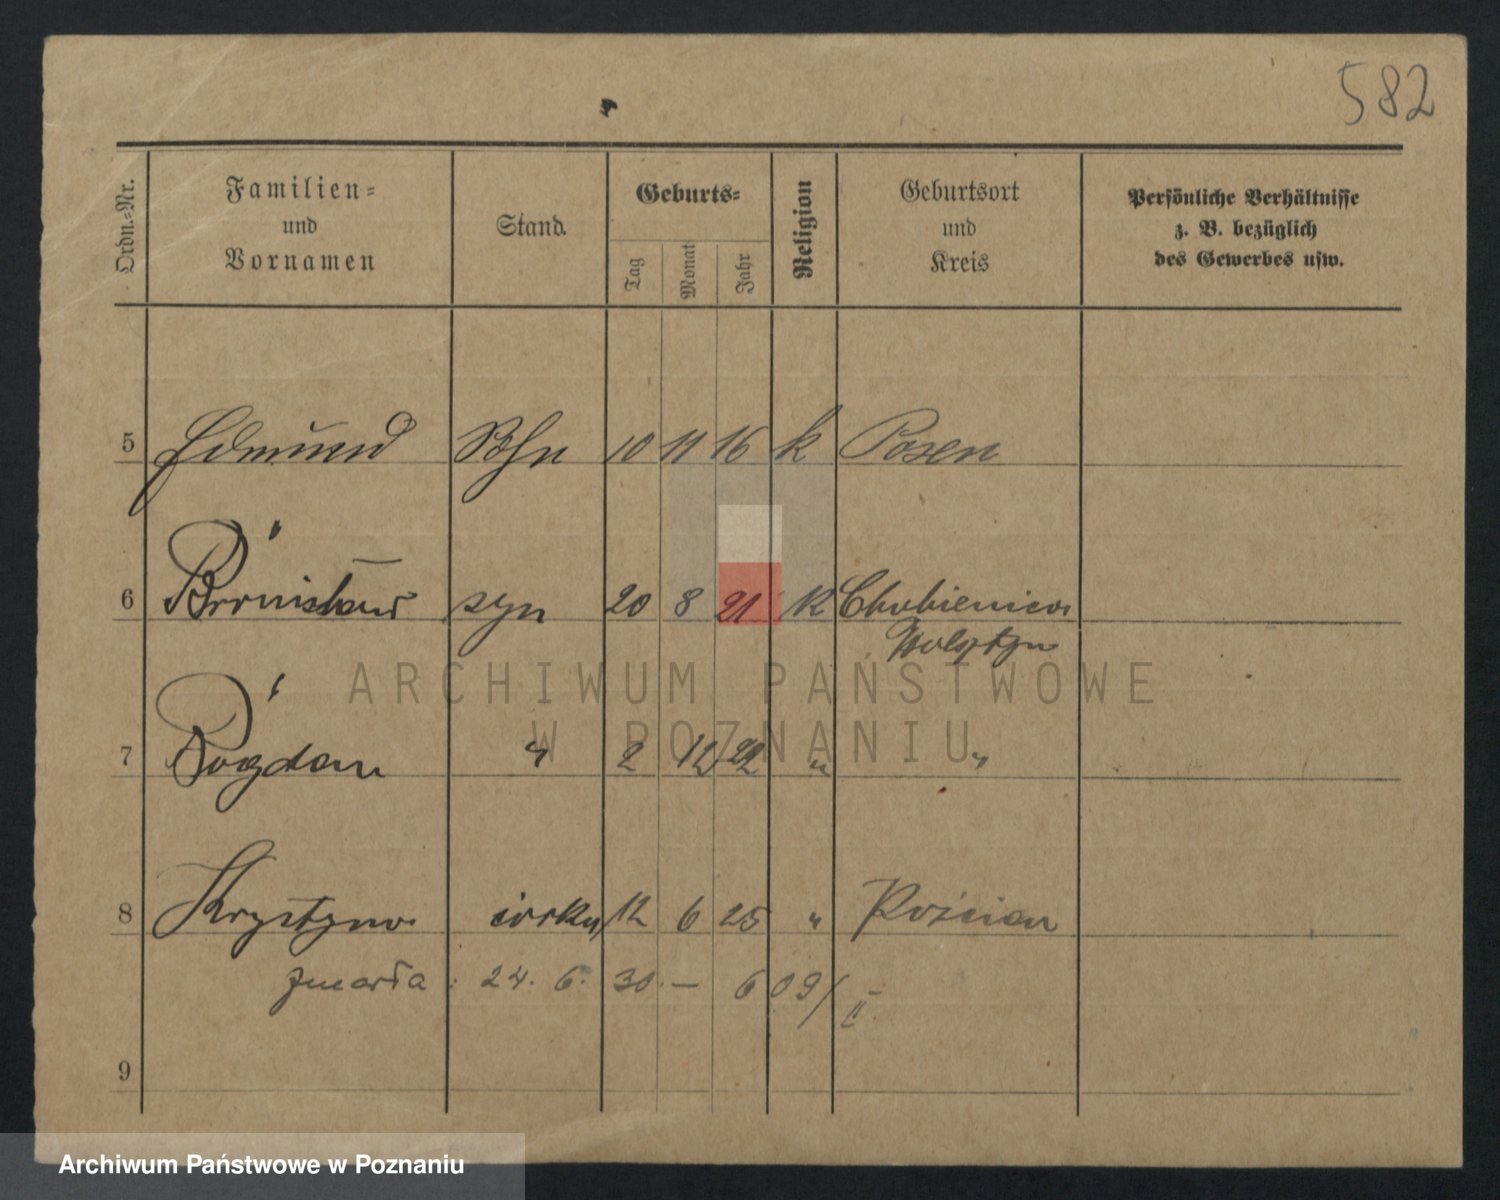 582
Ordn.=Nr.
Familien=
und
Vornamen
Stand.
Geburts=
Tag
Monat
Jahr
Religion
Geburtsort
und
Kreis
Persönliche Verhältnisse
z. B. bezüglich
des Gewerbes usw.
5 Edmund Sohn 10 11 16 k Posen
6 Bronisław syn 20 8 21 k Chobienice
Wolsztyn
ARCHIWUM PAŃSTWOWE
W POZNANIU
7 Bogdan " 2 12 22 " "
8 Krystyna córka 12 6 25 "
zmarła: 24. 6. 30. — 609/II.
9
Archiwum Państwowe w Poznaniu